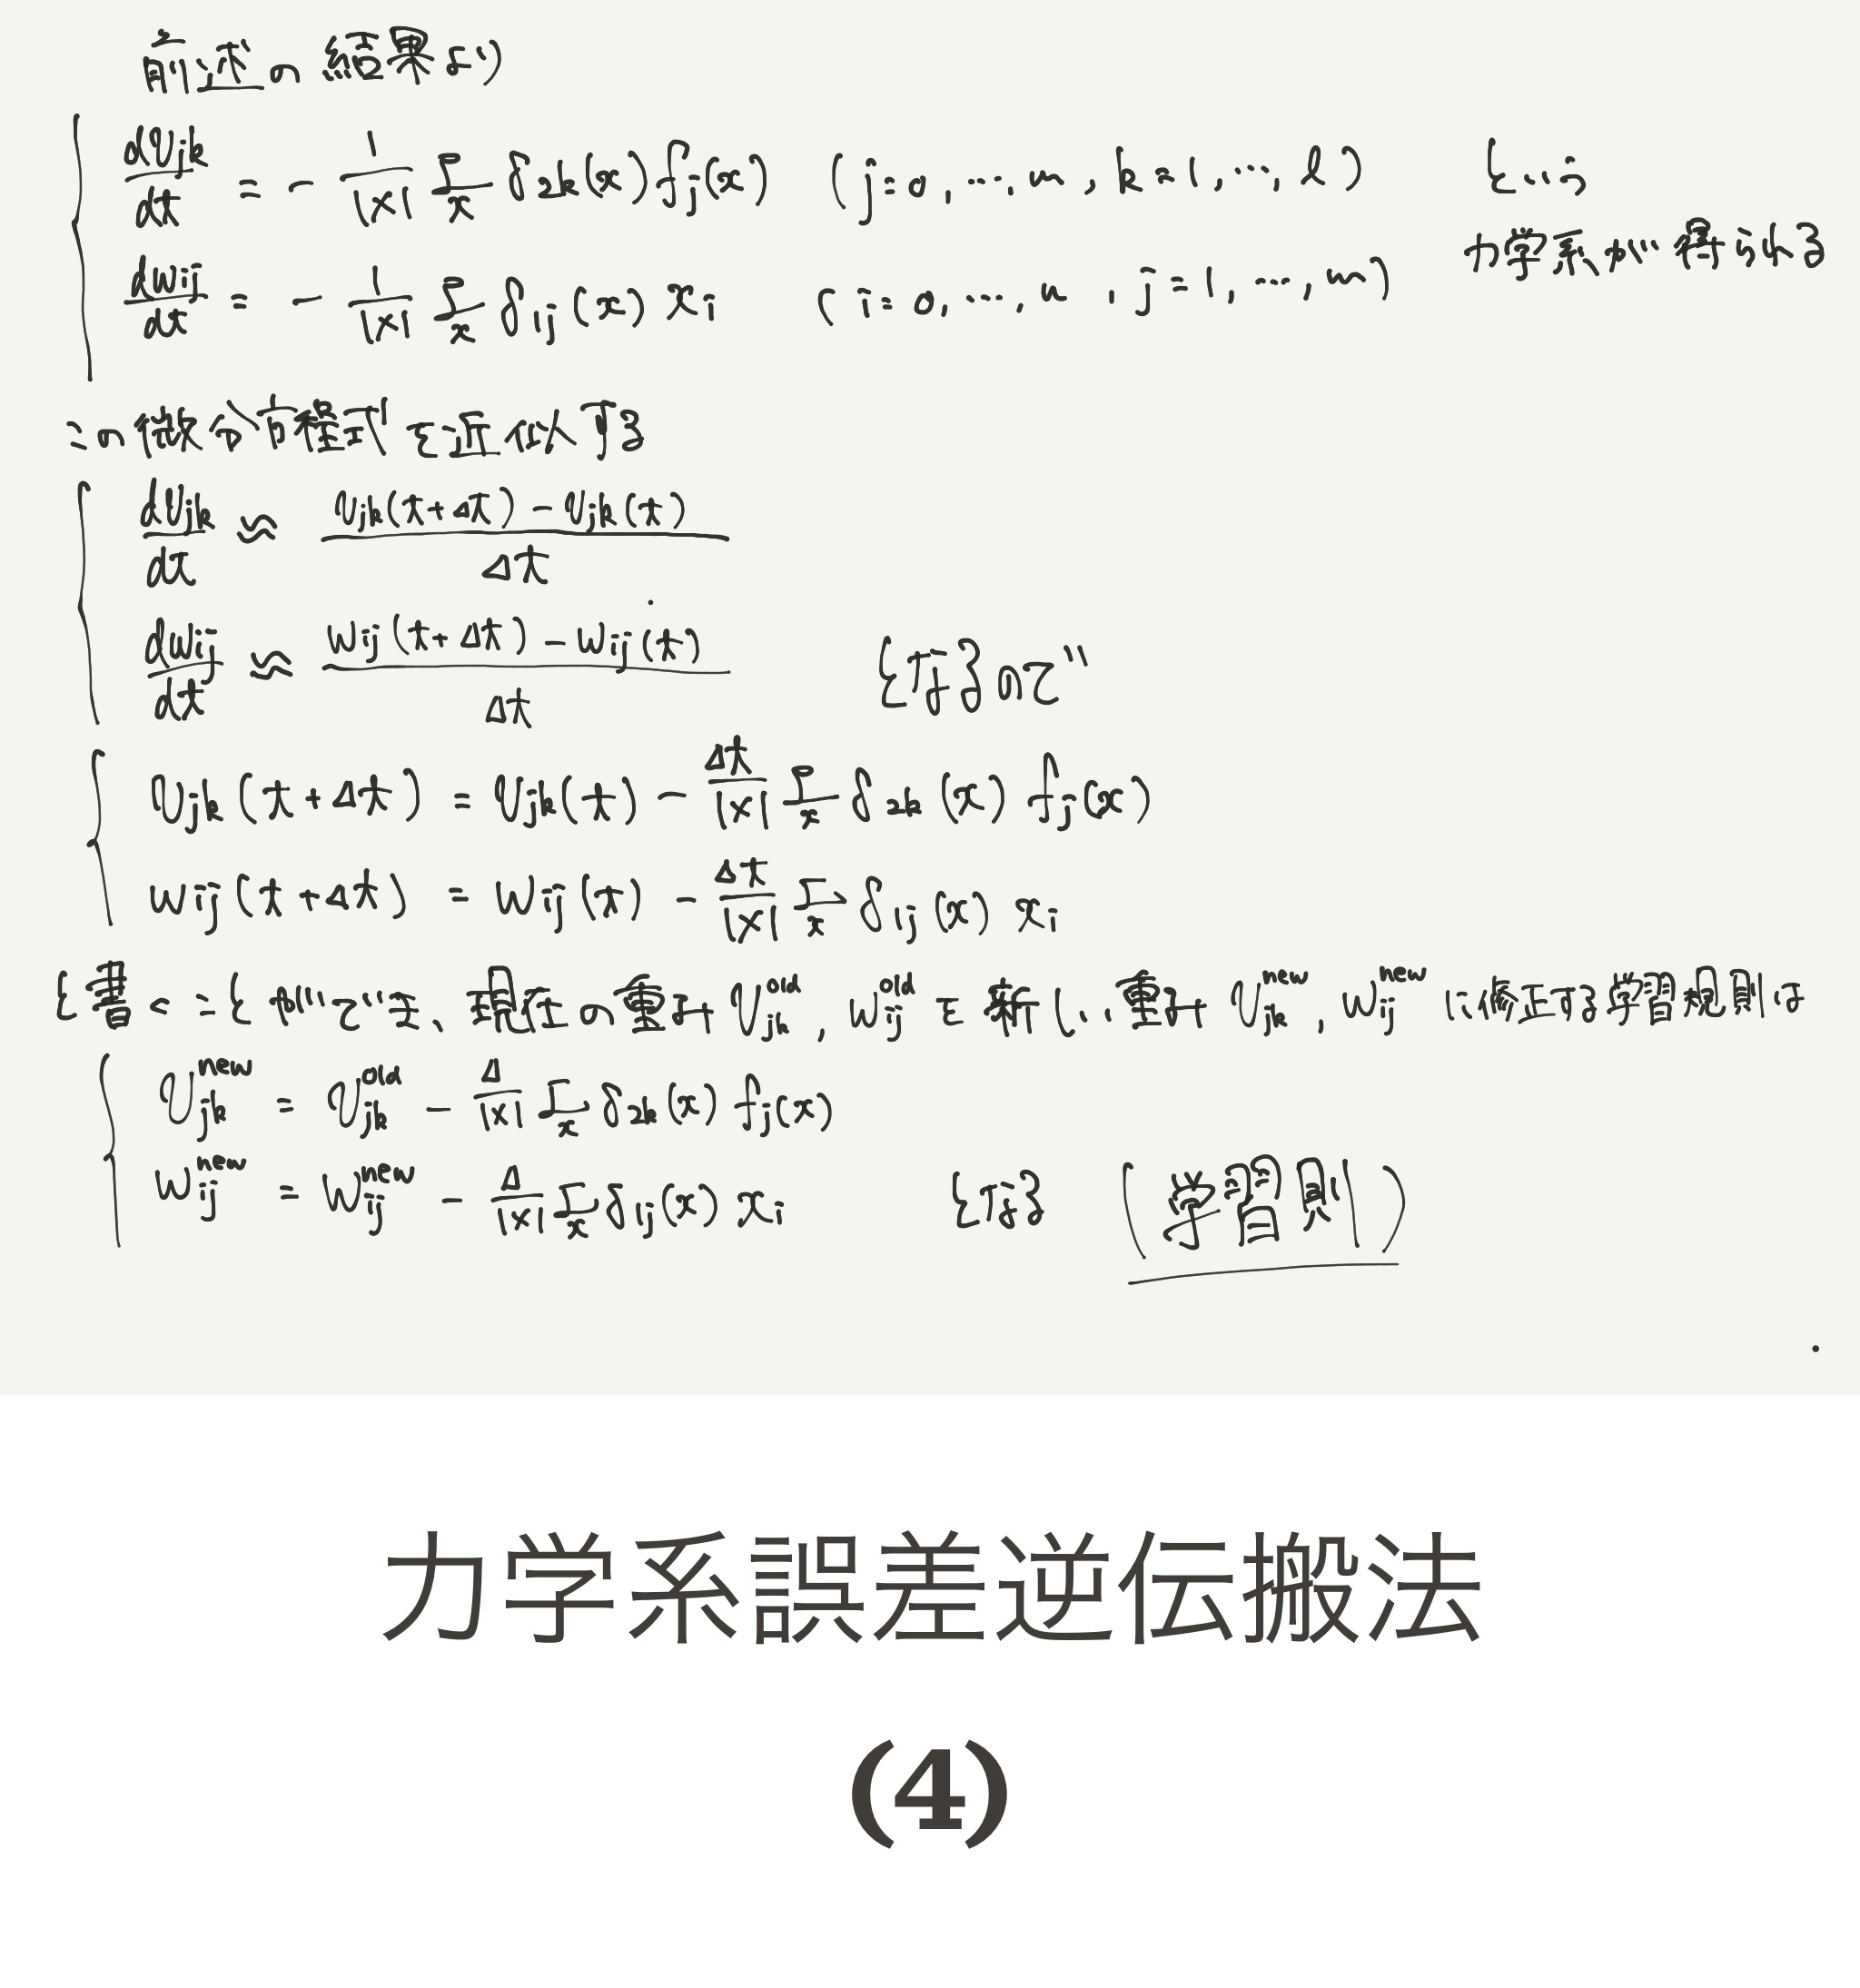 前述の結果より
dv_jk/dt = - 1/|X| Σ_x δ_2k(x) f_j(x) (j=0, …, m, k=1, …, l) という
力学系が得られる
dw_ij/dt = - 1/|X| Σ_x δ_1j(x) x_i (i=0, …, n, j=1, …, m)
この微分方程式を近似する
dv_jk/dt ≈ (v_jk(t+Δt) - v_jk(t))/Δt
dw_ij/dt ≈ (w_ij(t+Δt) - w_ij(t))/Δt となるので
v_jk(t+Δt) = v_jk(t) - Δt/|X| Σ_x δ_2k(x) f_j(x)
w_ij(t+Δt) = w_ij(t) - Δt/|X| Σ_x δ_1j(x) x_i
と書くことができ、現在の重み v_jk^old, w_ij^old を新しい重み v_jk^new, w_ij^new に修正する学習規則は
v_jk^new = v_jk^old - Δ/|X| Σ_x δ_2k(x) f_j(x)
w_ij^new = w_ij^new - Δ/|X| Σ_x δ_1j(x) x_i となる (学習則)
力学系誤差逆伝搬法
(4)